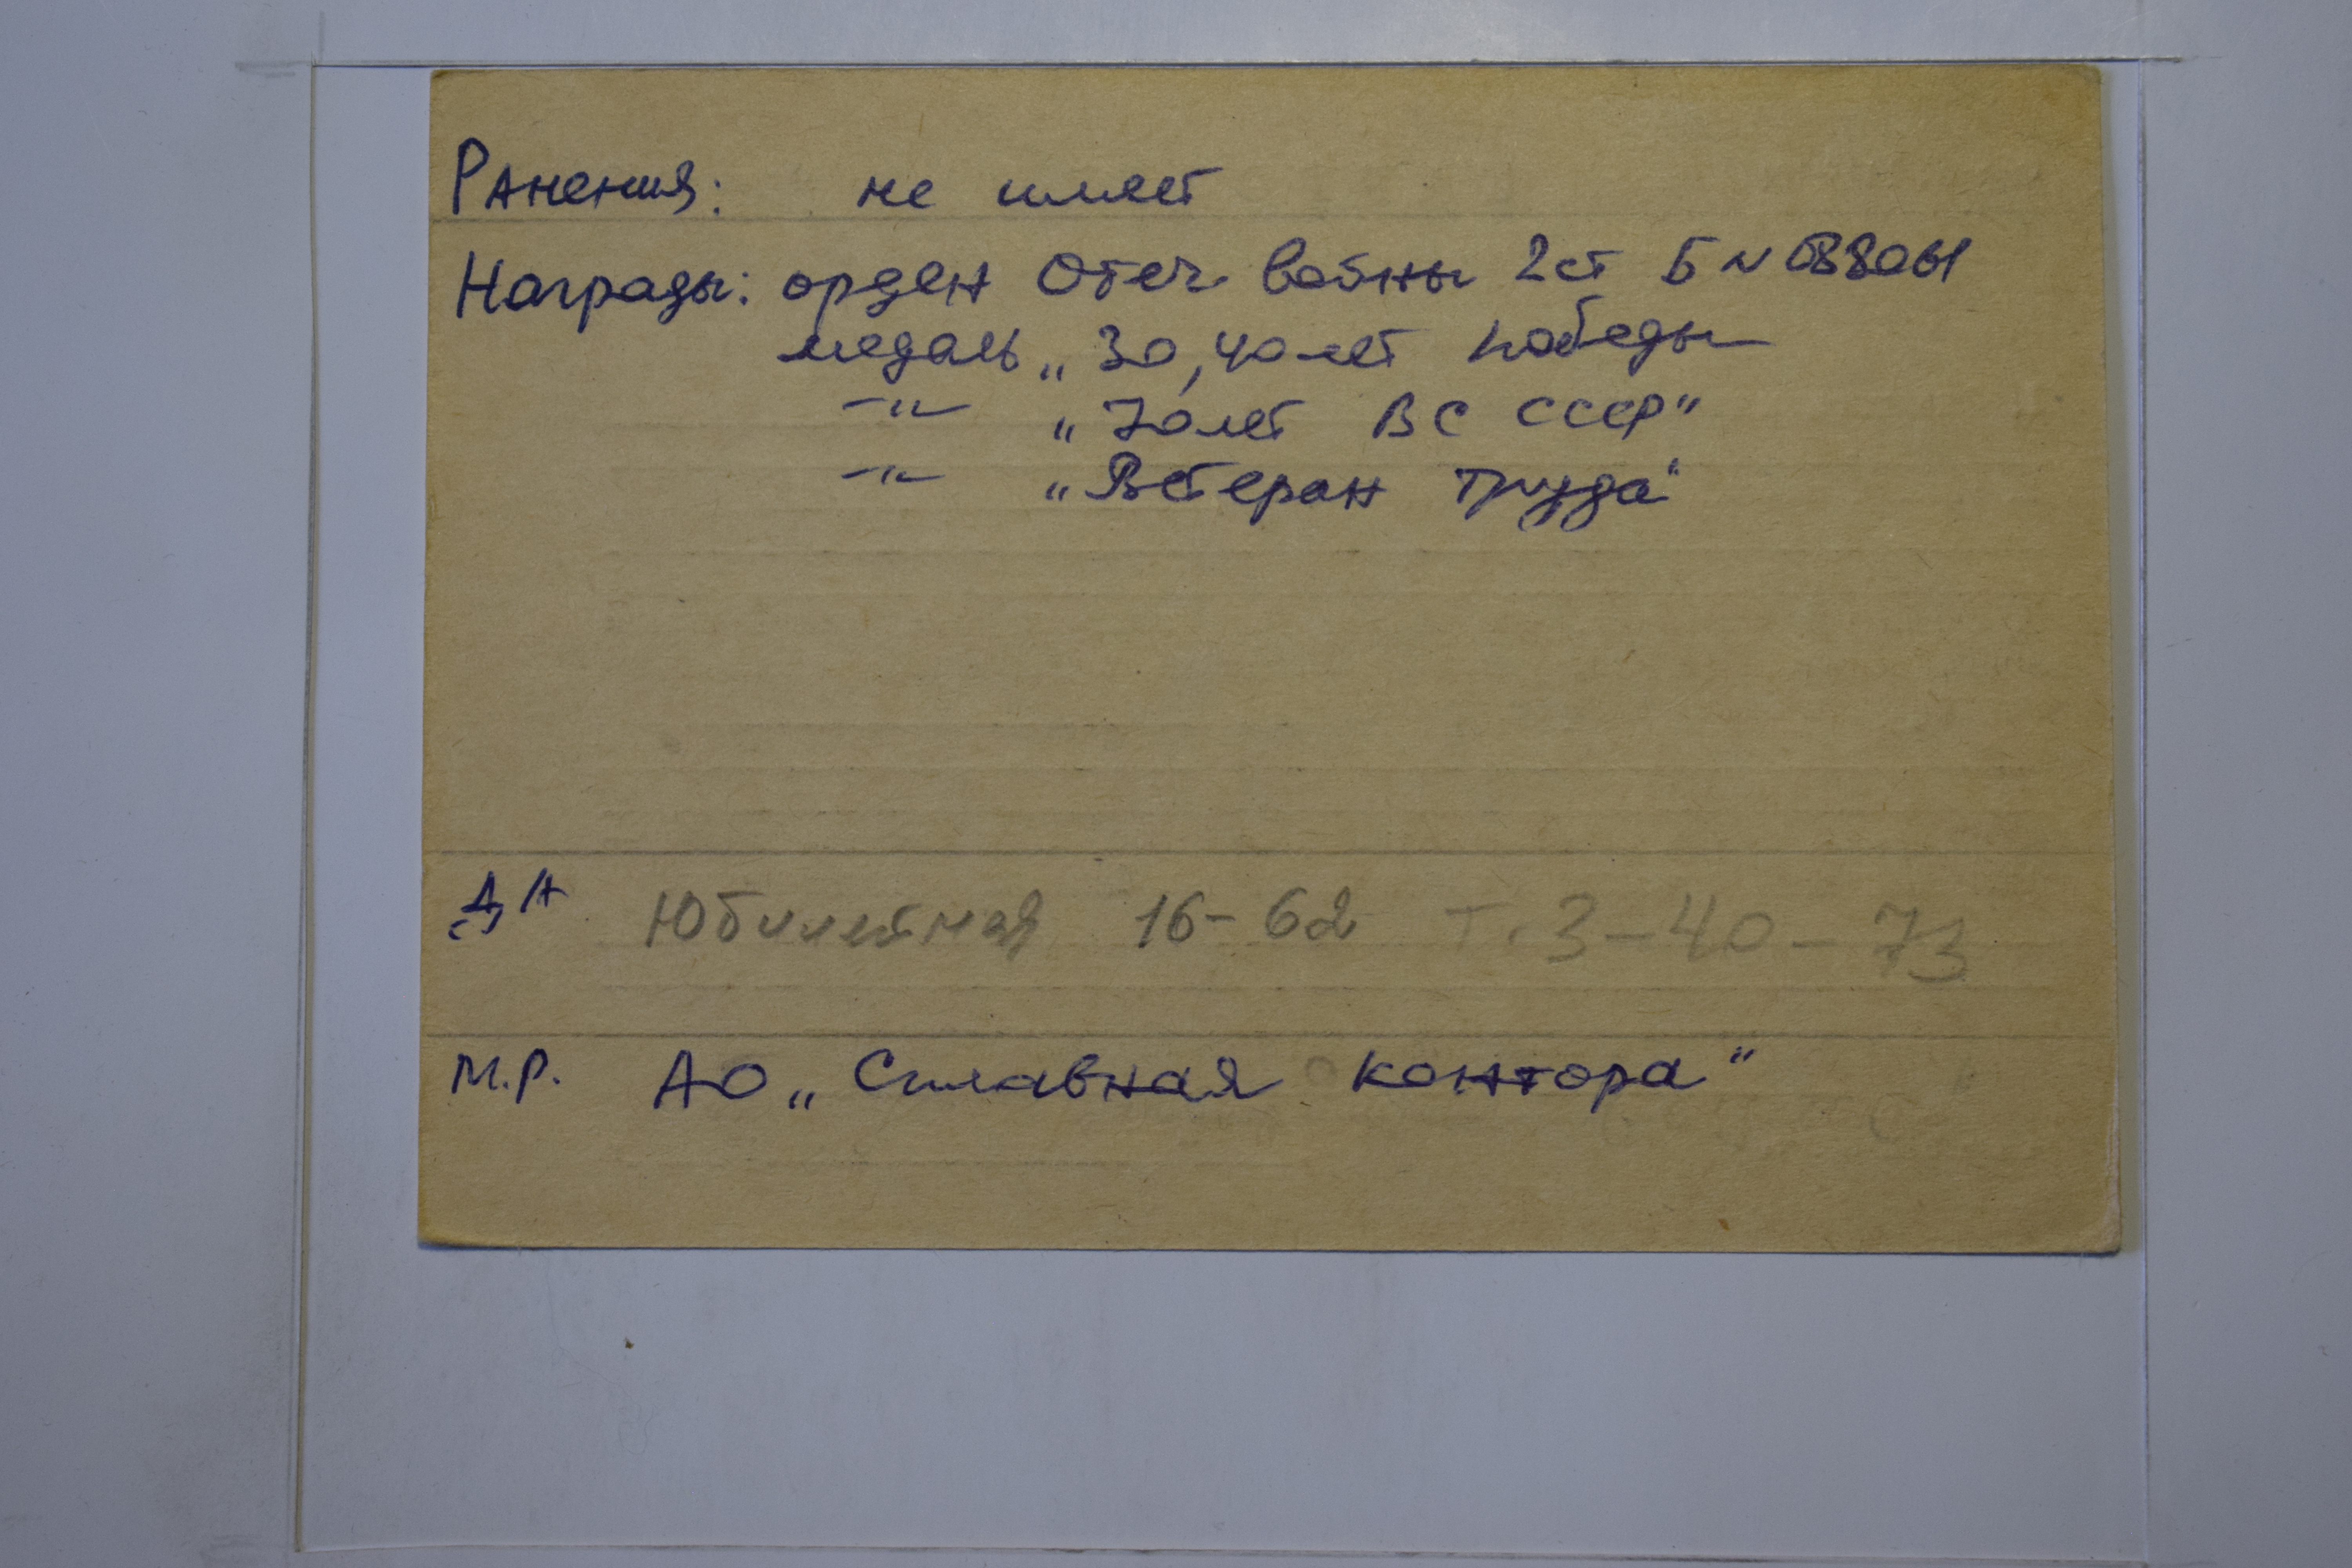 Ранения: не имеет
Награды: орден Отеч войны 2ст Б №
медаль „30, 40 лет победы
-"- „70 лет ВС СССР"
-"- „Ветеран труда"
Д/А Юбилейная 16-62 т. 3-40-73
М.Р. АО „Сплавная контора"